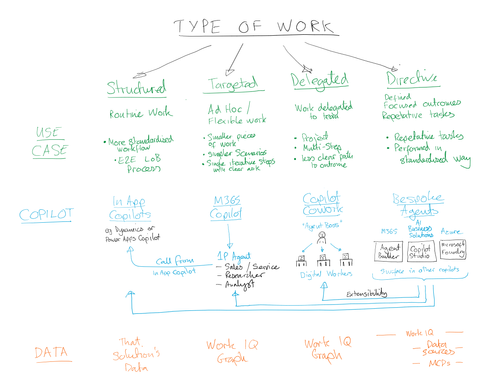 TYPE OF WORK
Structured
Targeted
Delegated
Directive
USE
CASE
Routine Work
• More Standardised
workflow
• E2E LoB
Process
Ad Hoc /
Flexible work
• Smaller pieces
of work
• Simpler Scenarios
• Single iterative steps
with clear ask
Work delegated
to total
• Project
• Multi-Step
• Less clear path
to outcome
Defined
Focused outcomes
Repetative tasks
• Repetative tasks
• Performed in
standardised way
COPILOT
In App
Copilots
eg Dynamics or
Power Apps Copilot
M365
Copilot
Call from
In App Copilot
1P Agent
– Sales / Service
– Researcher
– Analyst
Copilot
Cowork
"Agent Boss"
Digital Workers
Bespoke
Agents
M365
AI
Business
Solutions
Azure
Agent
Builder
Copilot
Studio
Microsoft
Foundry
Surface in other copilots
Extensibility
DATA
That
Solution's
Data
Work IQ
Graph
Work IQ
Graph
– Work IQ
– Data
Sources
– MCPs